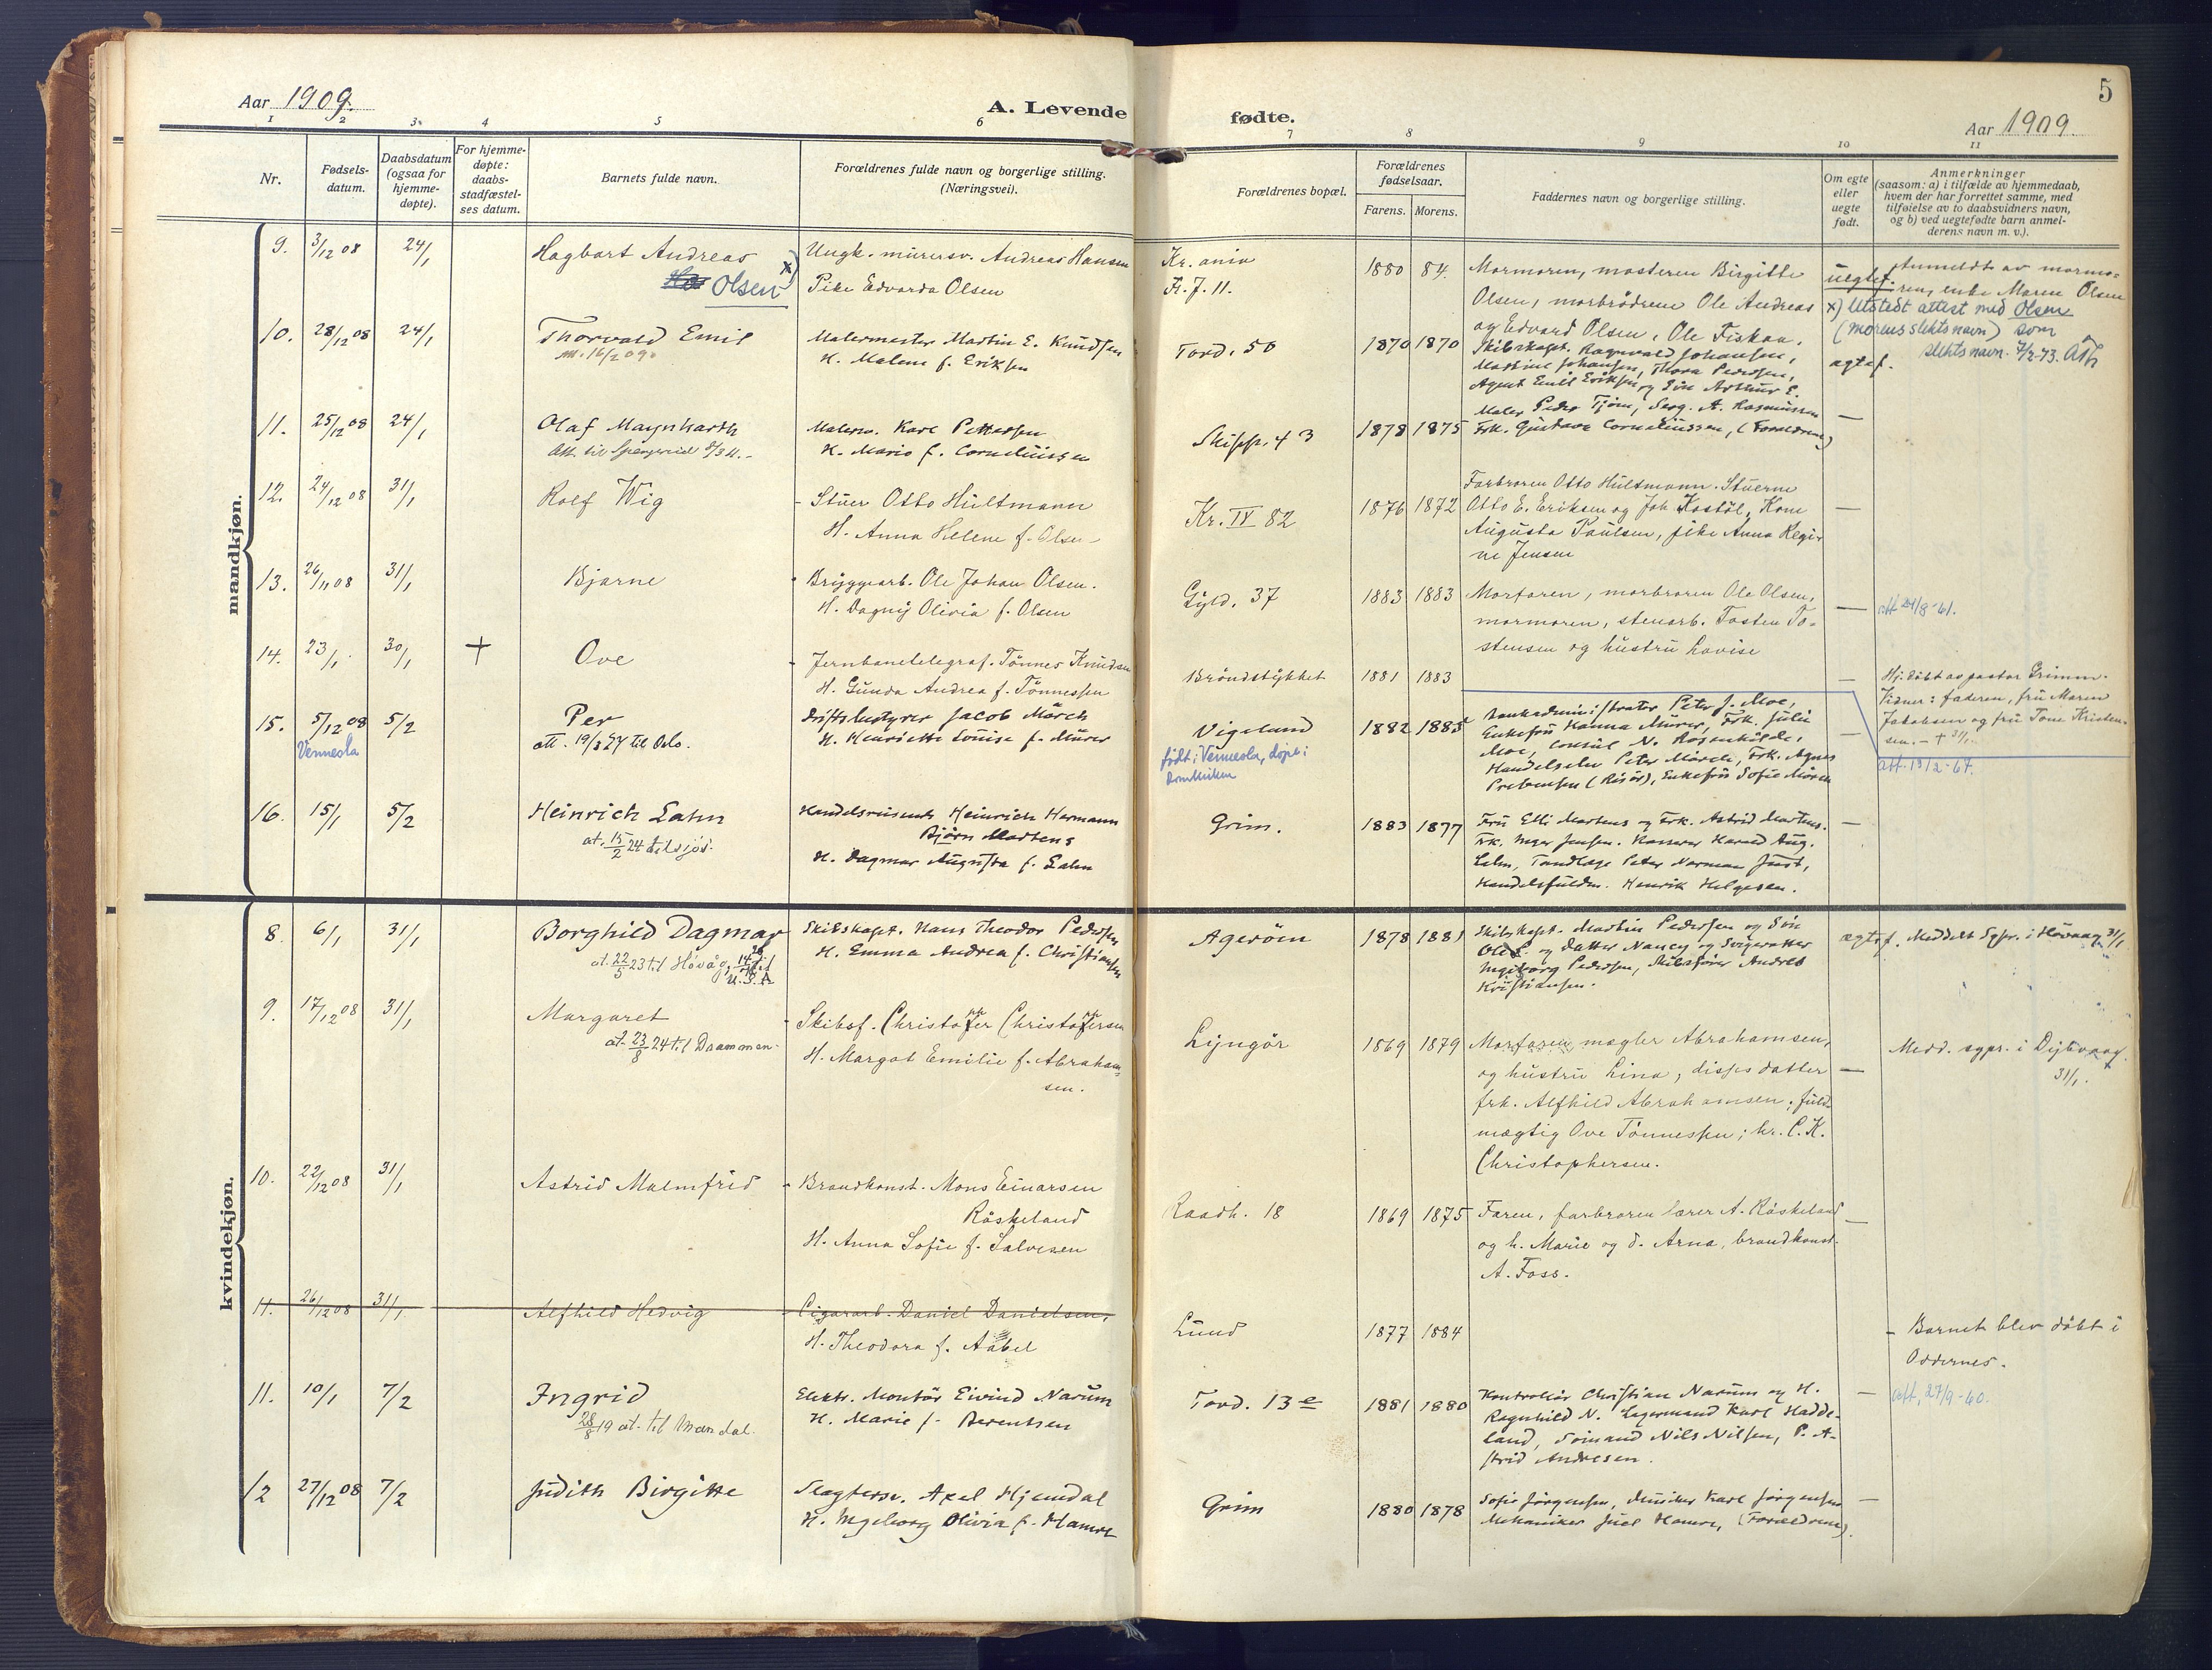 5
Aar 1909.
A. Levende fødte.
Aar 1909.
1 2 3 4 5 6 7 8 9 10 11
Nr.
Fødsels-
datum.
Daabsdatum
(ogsaa for
hjemme-
døpte).
For hjemme-
døpte:
daabs-
stadfæstel-
ses datum.
Barnets fulde navn.
Forældrenes fulde navn og borgerlige stilling.
(Næringsvei).
Forældrenes bopæl.
Forældrenes
fødselsaar.
Farens. Morens.
Faddernes navn og borgerlige stilling.
Om egte
eller
uegte
født.
Anmerkninger
(saasom: a) i tilfælde av hjemmedaab,
hvem der har forrettet samme, med
tilføielse av to daabsvidners navn,
og b) ved uegtefødte barn anmel-
derens navn m. v.).
mandkjøn.
9. 3/12 08 24/1
Hagbart Andreas
Olsen x)
Ungk. murersv. Andreas Hansen
Pike Edvarda Olsen
Kr.ania
Fr. J. 11.
1880 84.
Mormoren, mosteren Birgitte
Olsen, morbrødrene Ole Andreas
og Edvard Olsen, Ole Fiskaa.
uegtef.
Anmeldt av mormo-
ren, enke Maren Olsen
x) Utstedt attest med Olsen
(morens slektsnavn) som
slektsnavn. 7/2-73.
10. 28/12 08 24/1
Thorvald Emil
16/2 09
Malermester Martin E. Knudsen
H. Malene f. Eriksen
Tord. 50
1870 1870
Skibskapt. Ragnvald Johansen,
Martine Johansen, Thora Pedersen,
Agent Emil Eriksen og Søn Arthur E.
egtef.
11. 25/12 08 24/1
Olaf Maynharth
Att. til Spangereid 8/3 11.-
Malersv. Karl Pettersen
H. Marie f. Corneliussen
Skipp. 43
1878 1875
Maler Peder Tjøm, Serg. A. Rasmussen
Frk. Gustava Corneliussen, (Forældrene)
—
12. 24/12 08 31/1
Rolf Wig
- Stuer Otto Hultmann
H. Anna Helene f. Olsen
Kr. IV 82
1876 1872
Farbroren Otto Hultmann. Stuerne
Otto E. Eriksen og Joh Kostöl, Kone
Augusta Paulsen, pike Anna Regi-
ne Jensen
—
13. 26/11 08 31/1
Bjarne
- Bryggearb. Ole Johan Olsen.
H. Dagny Olivia f. Olsen
Gyld. 37
1883 1883
Morfaren, morbroren Ole Olsen,
mormoren, stenarb. Tosten To-
stensen og hustru Lovise
—
att 24/8-61.
14. 23/1 30/1 +
Ove
- Jernbanetelegraf. Tönnes Knudsen
H. Gunda Andrea f. Tönnessen
Bröndstykket
1881 1883
—
Hj. döbt av pastor Grimm.
Vidner: faderen, fru Maren
Jakobsen og fru Tone Kristen-
sen. - + 31/1.
15. 5/12 08 5/2
Vennesla
Per
att. 19/3 27 til Oslo.
Driftsbestyrer Jacob Mörch
H. Henriette Louise f. Mürer
Vigeland
født i Vennesla, døpt i
Domkirken
1882 1885
Bankadministrator Peter J. Moe,
Enkefru Hanna Mürer, Frk. Julie
Moe, Consul N. Rosenkilde,
Handelselev Peter Mörch, Frk. Agnes
Prebensen (Risör), Enkefru Sofie Mörch
—
att. 13/2-67.
16. 15/1 5/2
Heinrich Lahn
at. 15/2 24 til sjøs.
Handelsreisende Heinrich Hermann
Björn Martens
H. Dagmar Augusta f. Lahn
Grim.
1883 1877
Fru Elli Martens og Frk. Astrid Martens.
Frk. Inger Jensen. Kasserer Harald Aug.
Lahn, Tandlæge Peter Norman Just,
Handelsfuldm. Henrik Helgesen.
—
kvindekjøn.
8. 6/1 31/1
Borghild Dagmar
at. 22/5 23 til Høvåg, til
U.S.A
Skibskapt. Hans Theodor Pedersen
H. Emma Andrea f. Christiansen
Agerøen
1878 1881
Skibskapt. Martin Pedersen og Søn
Ole og Datter Nancy og Svigerdatter
Ingeborg Pedersen, Skibsfører Andres
Kristiansen.
egtef.
Meddelt Sgpr. i Høvaag 31/1
9. 17/12 08 31/1
Margaret
at. 23/8 24 til Drammen.
- Skibsf. Christoffer Christoffersen
H. Margot Emilie f. Abraham-
sen.
Lyngör
1869 1879
Morfaren, mægler Abrahamsen,
og hustru Lina; disses datter
frk. Alfhild Abrahamsen; fuld-
mægtig Ove Tönnessen; hr. C. K.
Christophersen.
—
Medd. sgpr. i Dybvaag.
31/1.
10. 22/12 08 31/1
Astrid Malmfrid
- Brandkonst. Mons Einarsen
Röskeland
H. Anna Sofie f. Salvesen
Raadh. 18
1869 1875
Faren, farbroren lærer A. Röskeland
og h. Marie og d. Arna, brandkonst.
A. Foss.
—
11. 26/12 08 31/1
Alfhild Hedvig
Cigararb. Daniel Danielsen,
H. Theodora f. Aabel
Lund
1877 1884
- Barnet blev döbt i
Oddernes.
11. 10/1 7/2
Ingrid
28/8 19 at. til Mandal.
Elektr. Montör Eivind Narum
H. Marie f. Berentsen
Tord. 13 e
1881 1880
Kontrollör Christian Narum og H.
Ragnhild N. Lagermand Karl Hadde-
land, Sömand Nils Nilsen, P. A-
strid Andresen.
—
att. 27/9-60.
12 27/12 08 7/2
Judith Birgitte
Slagtersv. Axel Hjemdal
H. Ingeborg Olivia f. Hamre
Grim
1880 1878
Sofie Jörgensen, Musiker Karl Jörgensen
Mekaniker Juel Hamre, (Forældrene).
—